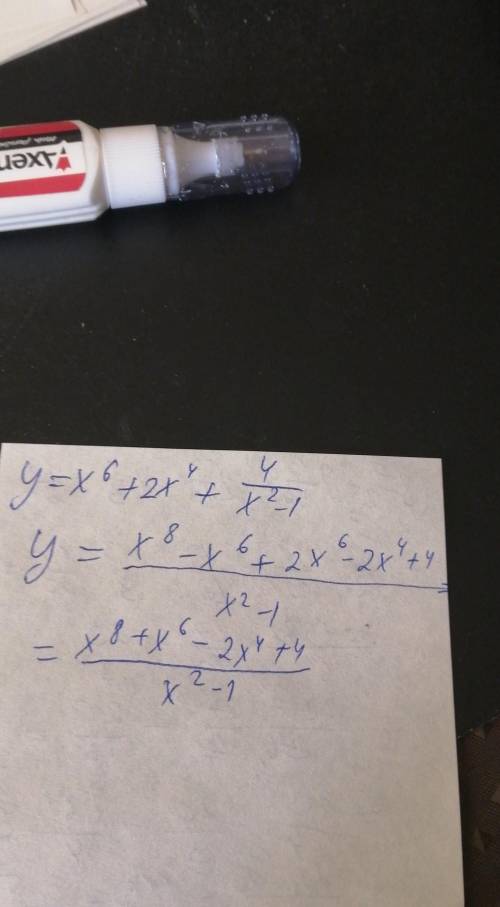 Axen
y = x⁶ + 2x⁴ + 4/(x² - 1)
y = (x⁸ - x⁶ + 2x⁶ - 2x⁴ + 4)/(x² - 1)
= (x⁸ + x⁶ - 2x⁴ + 4)/(x² - 1)